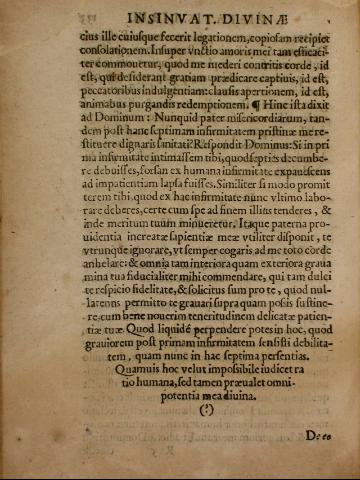 INSINVAT. DIVINÆ
cius ille cuiusque fecerit legationem, copiosam recipiet
consolationem. Insuper vnctio amoris mei tam efficaci-
ter commouetur, quod me mederi contritis corde, id
est, qui desiderant gratiam prædicare captiuis, id est,
peccatoribus indulgentiam: clausis apertionem, id est,
animabus purgandis redemptionem. ¶ Hinc ista dixit
ad Dominum: Nunquid pater misericordiarum, tan-
dem post hanc septimam infirmitatem pristinæ me re-
stituere dignaris sanitati? Respondit Dominus: Si in pri
ma infirmitate intimassem tibi, quod septies decumbe-
re debuisses, forsan ex humana infirmitate expauescens
ad impatientiam lapsa fuisses. Similiter si modo promit
terem tibi, quod ex hac infirmitate nunc vltimo labo-
rare deberes, certe cum spe ad finem illius tenderes, &
inde meritum tuum minueretur. Itaque paterna pro-
uidentia increatæ sapientiæ meæ vtiliter disponit, te
vtrunque ignorare, vt semper cogaris ad me toto corde
anhelare: & omnia tam interiora quam exteriora graua
mina tua fiducialiter mihi commendare, qui tam dulci
te respicio fidelitate, & solicitus sum pro te, quod nul-
latenus permitto te grauari supra quam possis sustine-
re, cum bene nouerim teneritudinem delicatæ patien-
tiæ tuæ. Quod liquidè perpendere potes in hoc, quod
grauiorem post primam infirmitatem sensisti debilita-
tem, quam nunc in hac septima persentias.
Quamuis hoc velut impossibile iudicet ra
tio humana, sed tamen præualet omni-
potentia mea diuina.
(?)
De eo